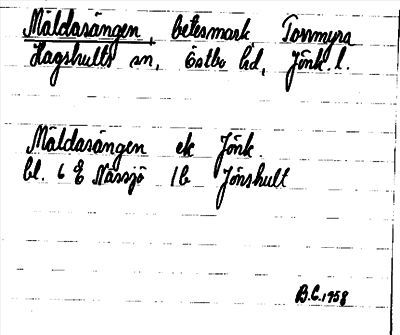 Mäldasängen, betesmark Tornmyra
Hagshults sn, Östbo hd, Jönk. l.
Mäldasängen ek Jönk.
bl. 6 E Nässjö 1b Jönshult
B.C. 1958